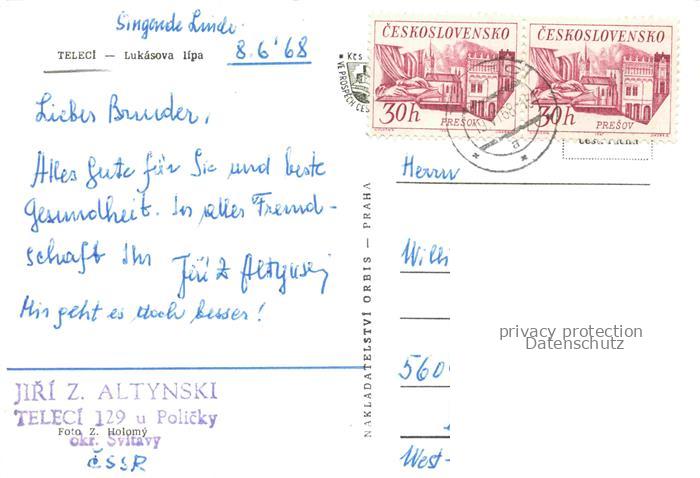 Singende Linde
TELECÍ — Lukásova lípa 8.6'68
Lieber Bruder,
Alles Gute für Sie und beste
Gesundheit. In aller Freund-
schaft Ihr Jiří Z Altynski
Mir geht es doch besser!
JIŘÍ Z. ALTYNSKI
TELECÍ 129 u Poličky
Foto Z. Holomý
okr. Svitavy
ČSSR
NAKLADATELSTVÍ ORBIS — PRAHA
KČS
VE PROSPĚCH
ČESKOSLOVENSKO
30h
PREŠOV
ČESKOSLOVENSKO
30h
PREŠOV
Herrn
Willi
560
West-
privacy protection
Datenschutz